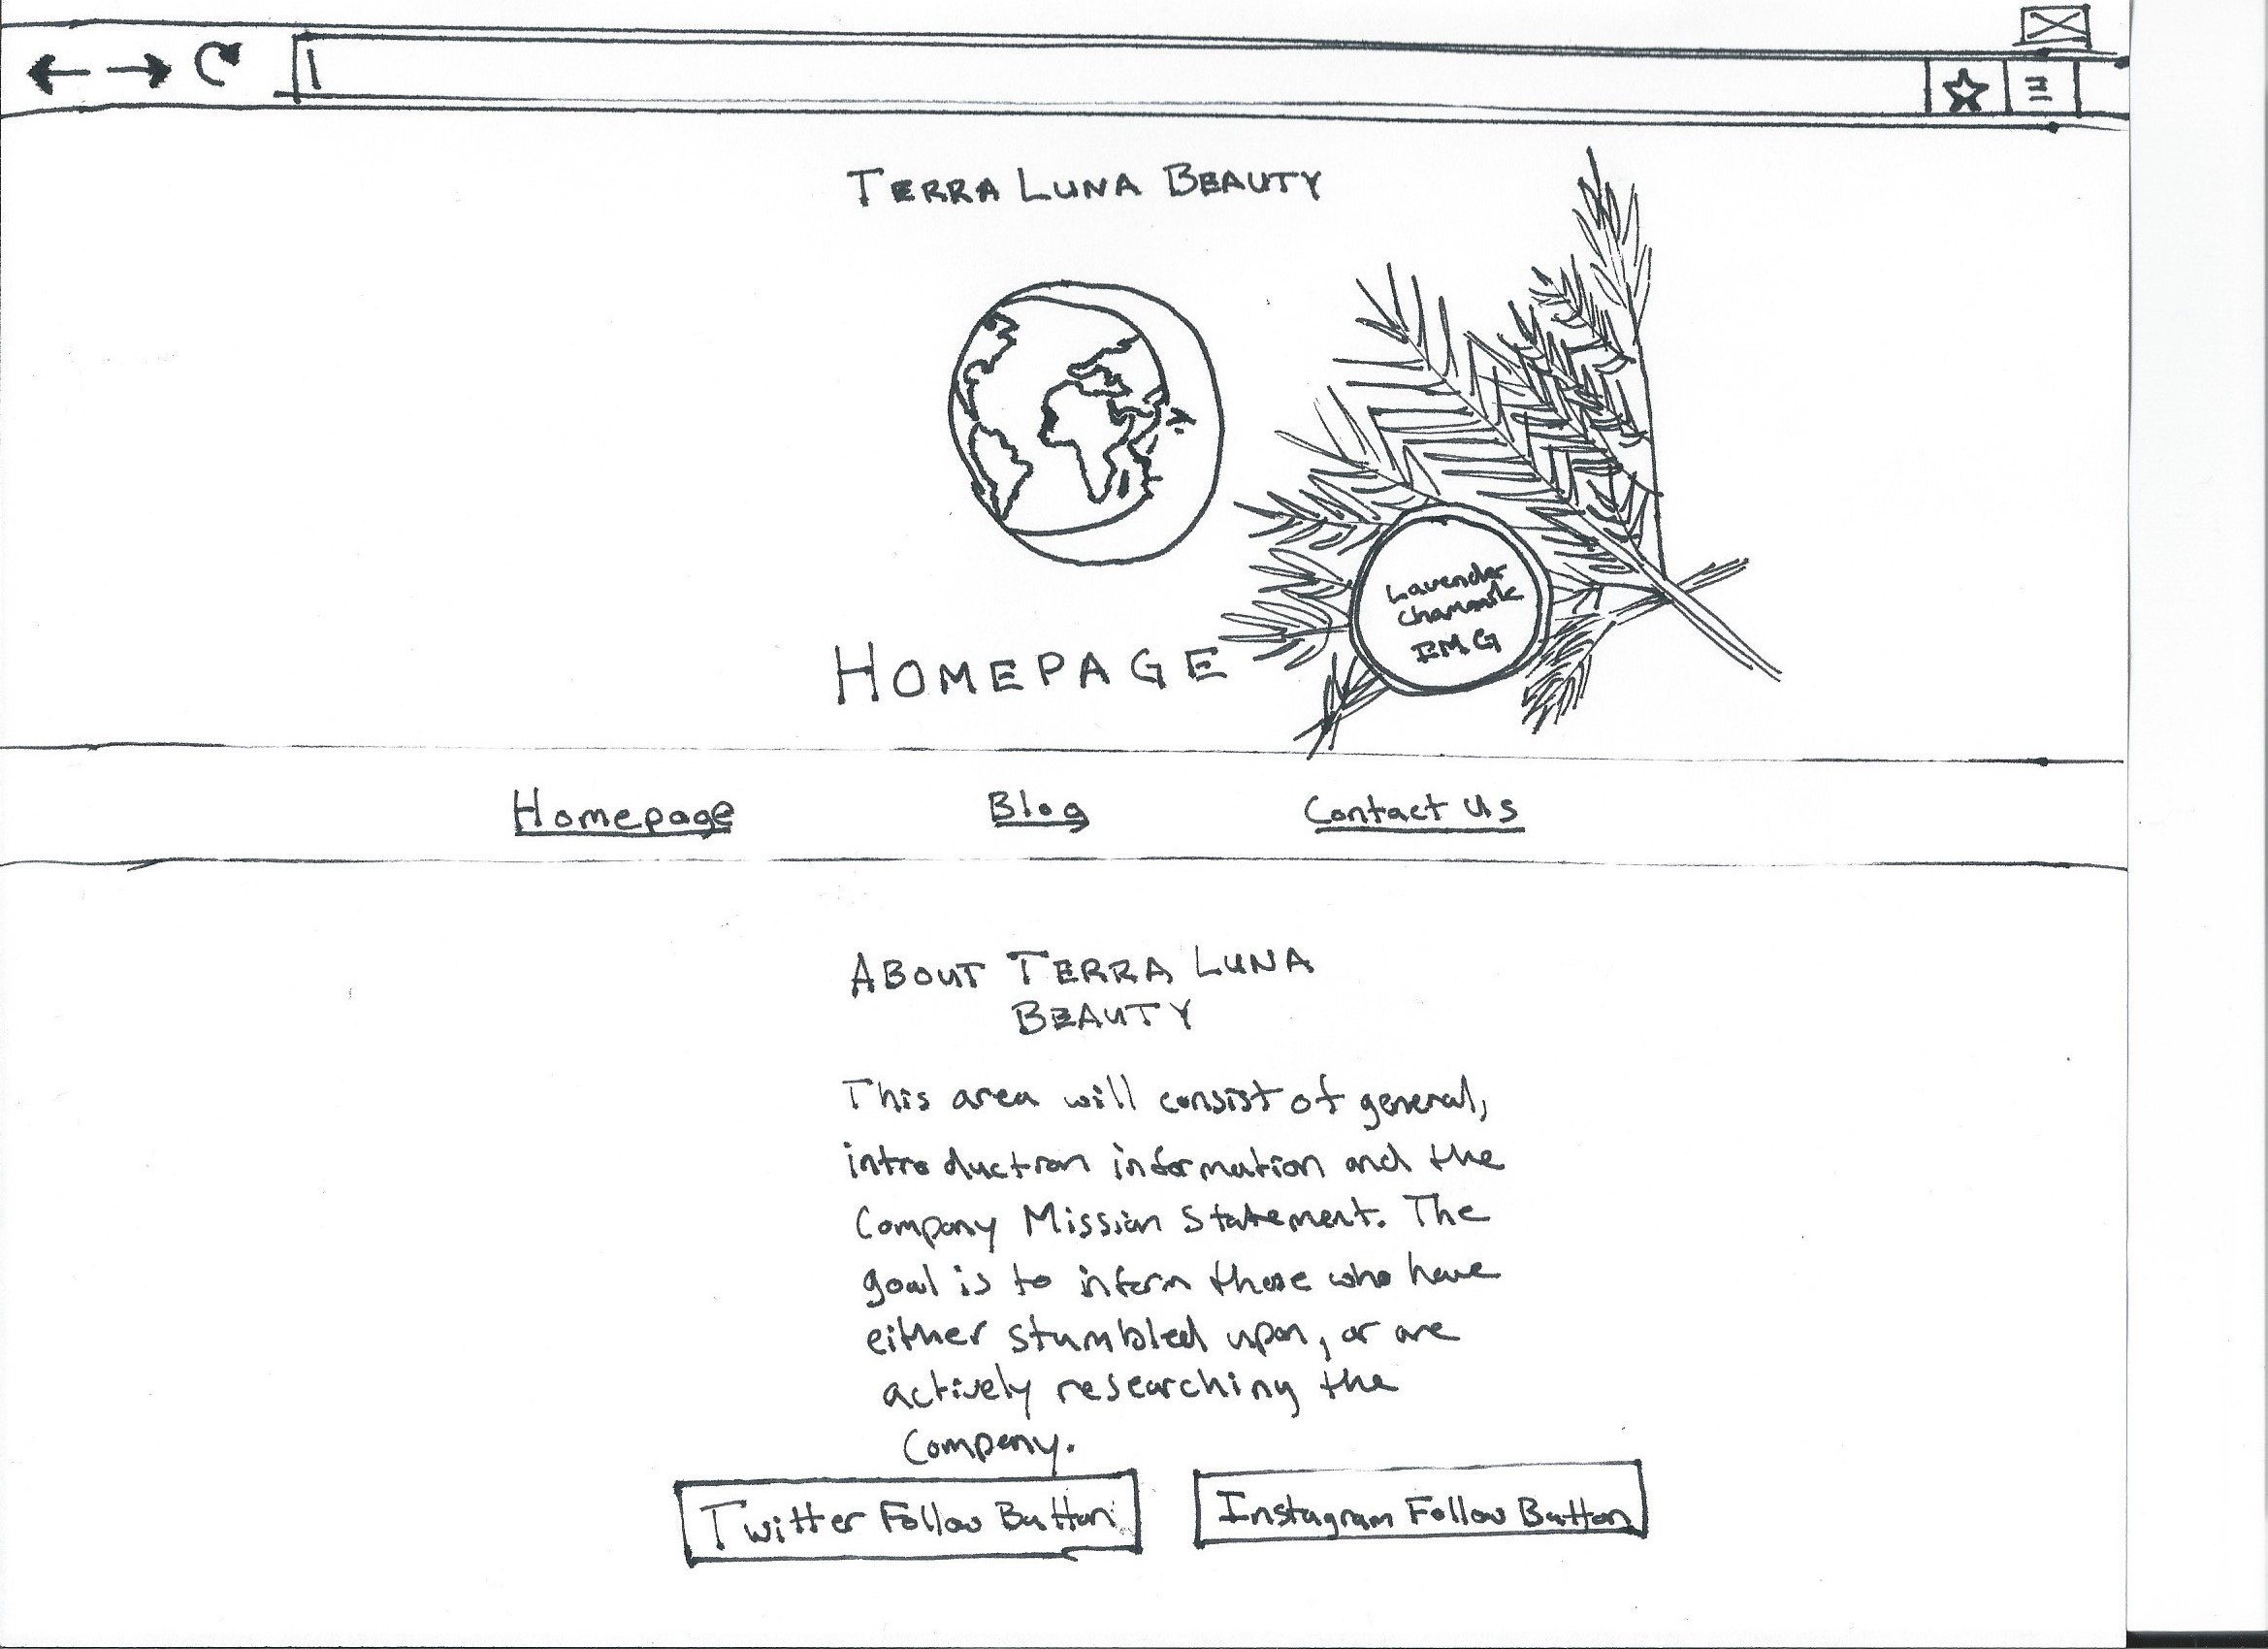 TERRA LUNA BEAUTY
Lavender
IMG
HOMEPAGE
Homepage Blog Contact Us
ABOUT TERRA LUNA
BEAUTY
This area will consist of general,
introduction information and the
Company Mission Statement. The
goal is to inform those who have
either stumbled upon, or are
actively researching the
Company.
Twitter Follow Button Instagram Follow Button